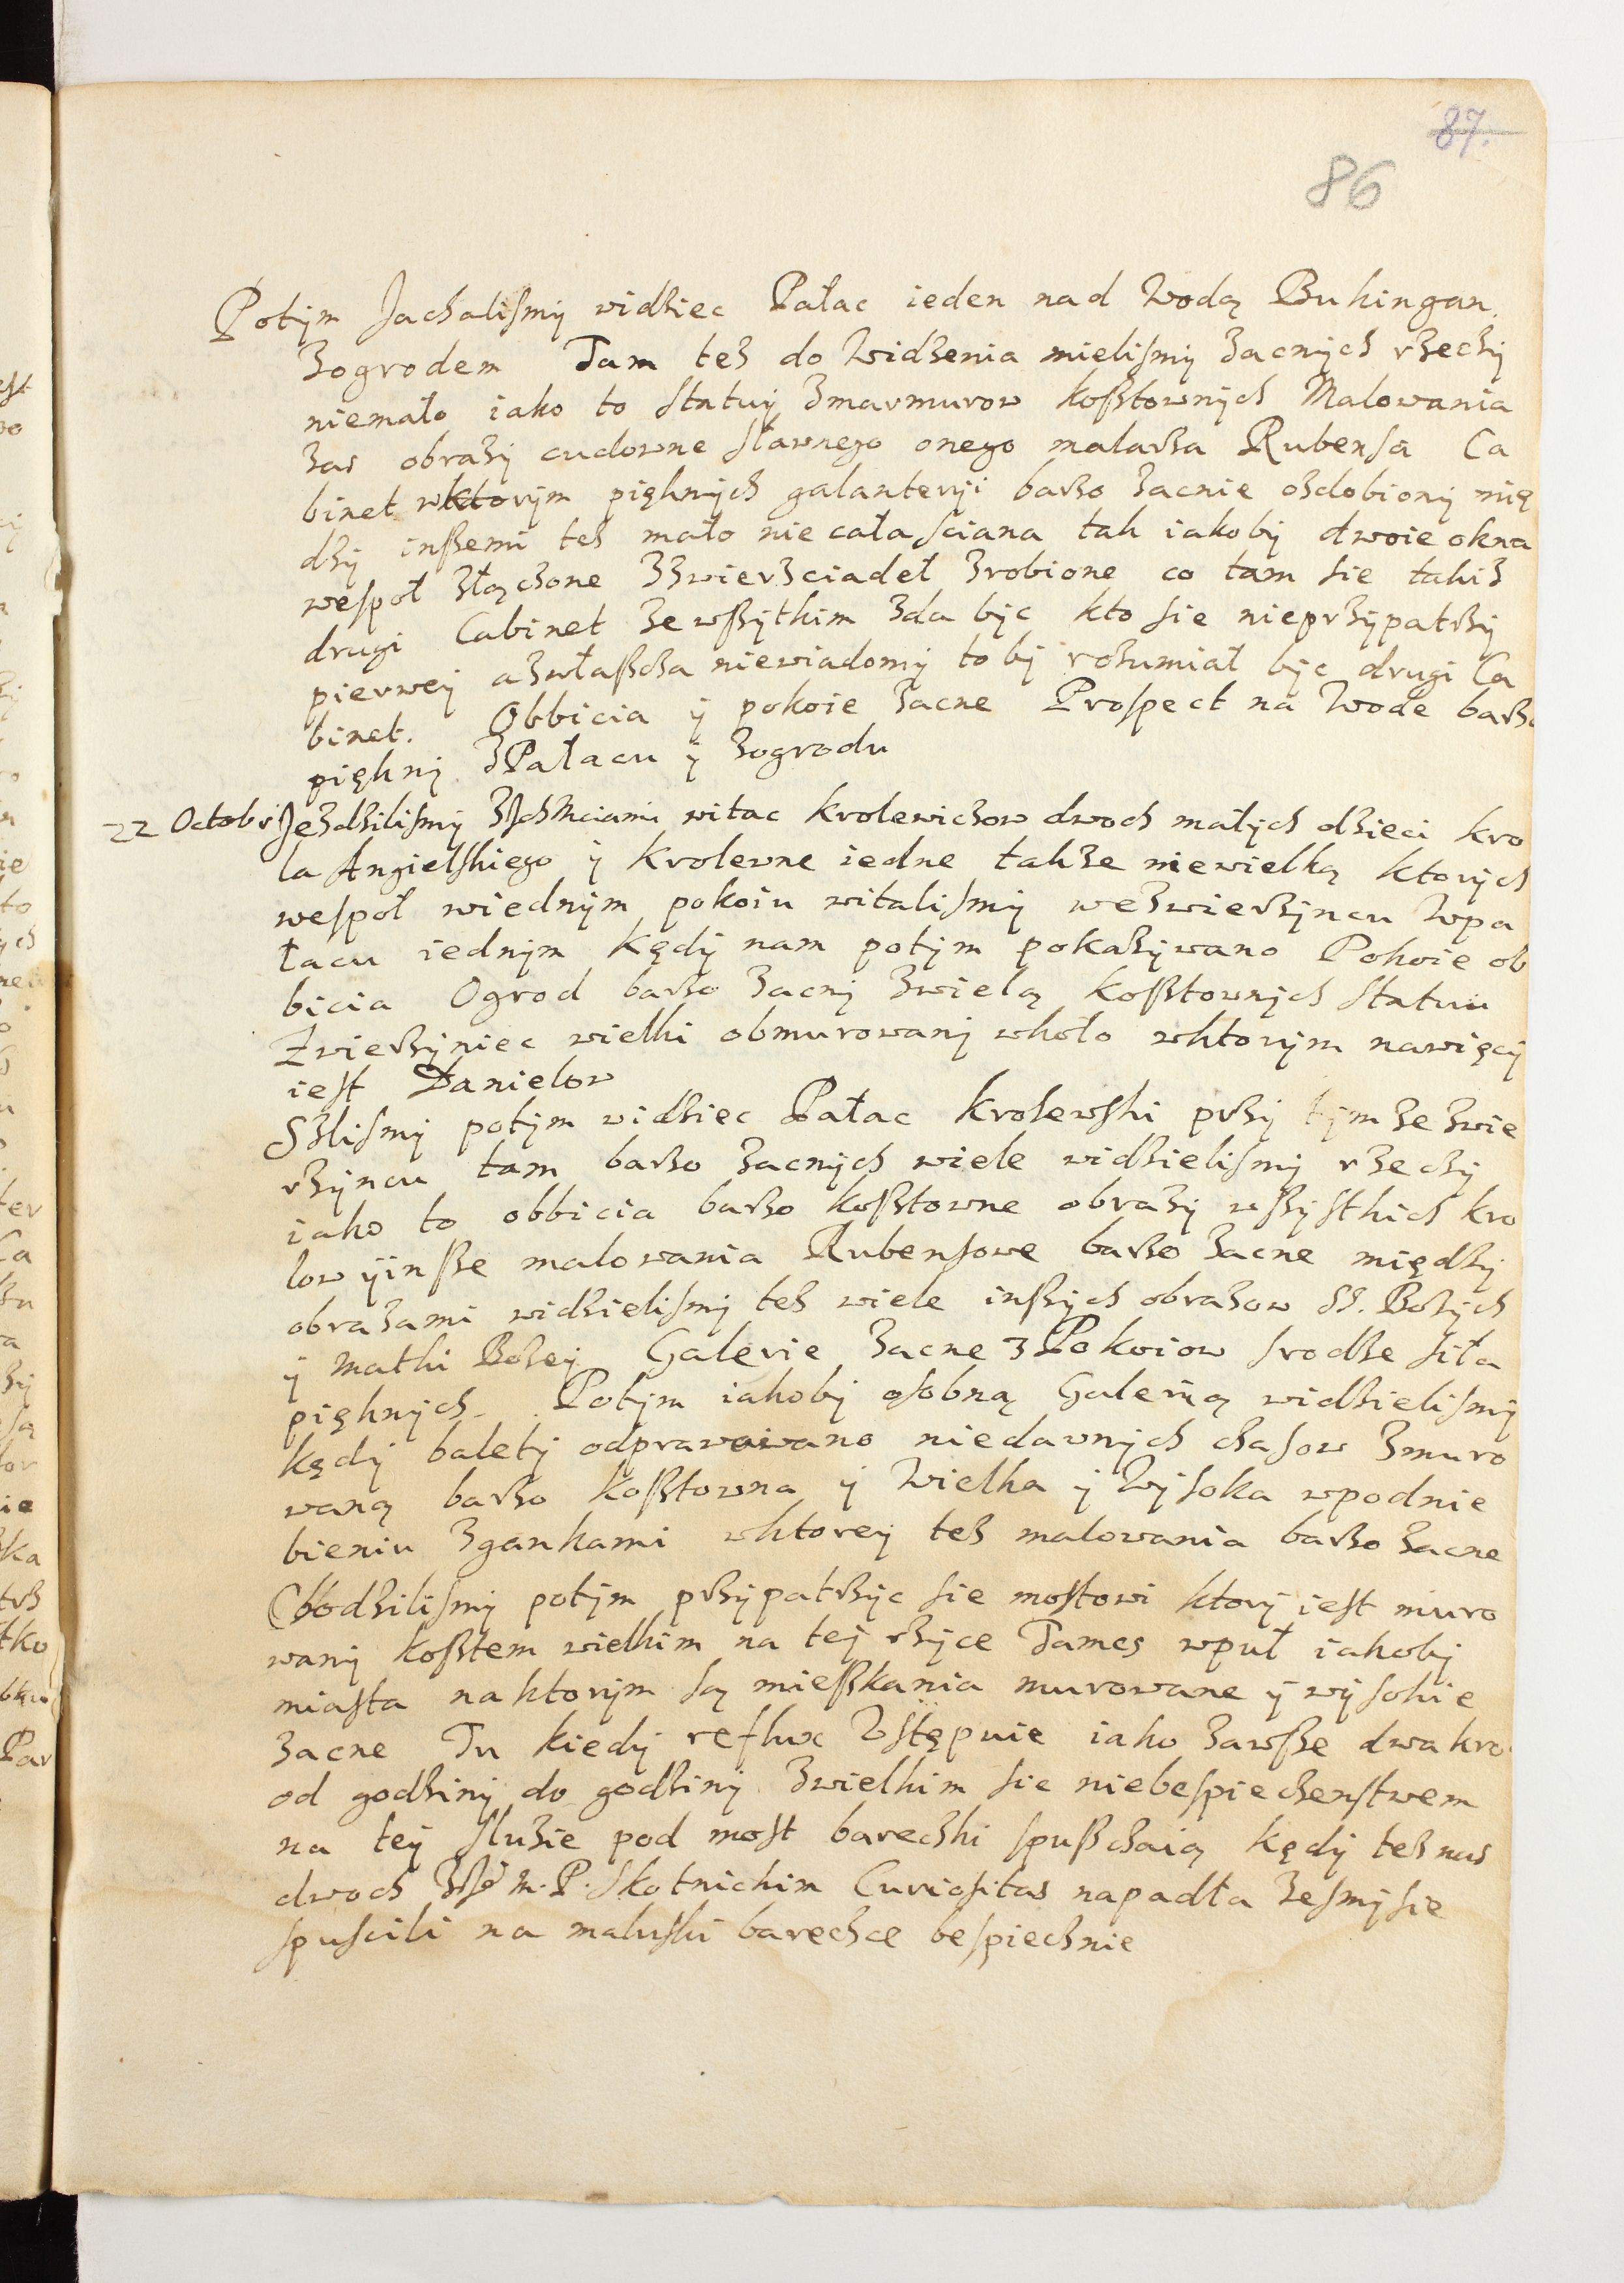 87.
86
Potym Jachalismy widziec Pałac ieden nad Wodą Bukingan
zogrodem Tam tez do Widzenia mielismy zacnych rzeczy
niemało iako to Statuy zmarmurow kosztownych Malowania
zas obrazy cudowne sławnego onego malarza Rubensa Ca
binet wktorym pięknych galanteryi barzo zacnie ozdobiony mię
dzy inszemi tez mało nie cała sciana tak iakoby dwoie okna
wespoł złączone zzwierzciadeł zrobione co tam sie takiz
drugi Cabinet ze wszytkim zda byc kto sie nieprzypatrzy
pierwey azwłaszcza niewiadomy toby rozumiał byc drugi Ca
binet. Obbicia y pokoie zacne Prospect na Wode barzo
piękny zPałacu y zogrodu
22 Octobr Jezdzilismy zJchMciami witac krolewiczow dwoch małych dzieci kro
la Angielskiego y krolewne iedne takze niewielką ktorych
wespoł wiednym pokoiu witalismy wezwierzyncu Wpa
łacu iednym kędy nam potym pokazywano Pokoie ob
bicia Ogrod barzo zacny zwielą kosztownych Statuu
Zwierzyniec wielki obmurowany wkoło wktorym nawięcy
iest Danielow
Szlismy potym widziec Pałac krolewski przy tym ze zwie
rzyncu tam barzo zacnych wiele widzielismy rzeczy
iako to obbicia barzo kosztowne obrazy wszystkich kro
low yinsze malowania Rubensowe barzo zacne między
obrazami widzielismy tez wiele inszych obrazow SS. Bozych
y Matki Bozey Galerie zacne z Pokoiow srodze siła
pięknych. Potym iakoby osobną Galerią widzielismy
kędy balety odprawowano niedawnych czasow zmuro
waną barzo kosztowna y Wielka y Wysoka wpodnie
bieniu zgankami wktorey tez malowania barzo zacne
Chodzilismy potym przypatrzyc sie mostowi ktory iest muro
wany kosztem wielkim na tej rzyce Tames wpuł iakoby
miasta naktorym są mieszkania murowane y wysokie
zacne Tu kiedy reflux Wstępuie iako zawsze dwa kro
od godziny do godziny zwielkim sie niebespieczenstwem
na tey sluzie pod most bareczki spuszczaią kędy tez nas
dwoch M. P. Skotnickim Curiositas napadła zesmysie
spuscili na maluski bareczce bespiecznie